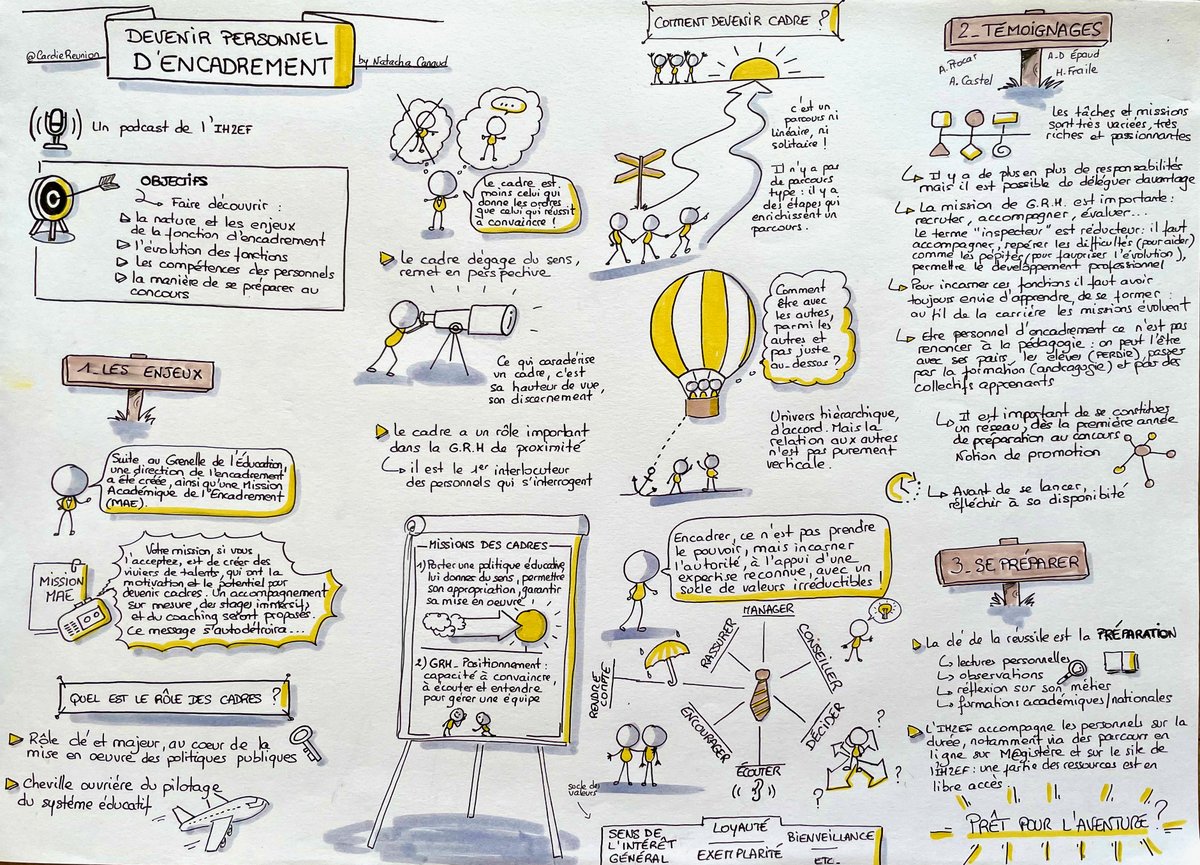 @CardieReunion
DEVENIR PERSONNEL
D'ENCADREMENT
by Natacha Canaud
Un podcast de l'IH2EF
OBJECTIFS
Faire découvrir :
la nature et les enjeux
de la fonction d'encadrement
l'évolution des fonctions
Les compétences des personnels
la manière de se préparer au
concours
1. LES ENJEUX
Suite au Grenelle de l'Éducation,
une direction de l'encadrement
a été créée, ainsi qu'une Mission
Académique de l'Encadrement
(MAE).
MISSION
MAE
Votre mission, si vous
l'acceptez, est de créer des
viviers de talents, qui ont la
motivation et le potentiel pour
devenir cadres. Un accompagnement
sur mesure, des stages immersifs,
et du coaching seront proposés.
Ce message s'autodétruira...
QUEL EST LE RÔLE DES CADRES ?
Rôle clé et majeur, au coeur de la
mise en oeuvre des politiques publiques
Cheville ouvrière du pilotage
du système éducatif
...
le cadre est
moins celui qui
donne les ordres
que celui qui réussit
à convaincre !
le cadre dégage du sens,
remet en perspective
Ce qui caractérise
un cadre, c'est
sa hauteur de vue,
son discernement
le cadre a un rôle important
dans la G.R.H de proximité
il est le 1er interlocuteur
des personnels qui s'interrogent
MISSIONS DES CADRES
1) Porter une politique éducative,
lui donner du sens, permettre
son appropriation, garantir
sa mise en oeuvre !
2) GRH - Positionnement :
capacité à convaincre,
à écouter et entendre
pour gérer une équipe
COMMENT DEVENIR CADRE ?
c'est un
parcours ni
linéaire, ni
solitaire !
Il n'y a pas
de parcours
type : il y a
des étapes qui
enrichissent un
parcours.
Comment
être avec
les autres,
parmi les
autres et
pas juste
au-dessus ?
Univers hiérarchique,
d'accord. Mais la
relation aux autres
n'est pas purement
verticale.
Encadrer, ce n'est pas prendre
le pouvoir, mais incarner
l'autorité, à l'appui d'une
expertise reconnue, avec un
socle de valeurs irréductibles !
MANAGER
RASSURER
CONSEILLER
RENDRE
COMPTE
ENCOURAGER
DÉCIDER
ÉCOUTER
?
?
?
socle des
valeurs
SENS DE
L'INTÉRÊT
GÉNÉRAL
LOYAUTÉ
EXEMPLARITÉ
BIENVEILLANCE
ETC.
2_TÉMOIGNAGES
A. Castel
A.D Épaud
H. Fraile
les tâches et missions
sont très variées, très
riches et passionnantes
Il y a de plus en plus de responsabilités
mais il est possible de déléguer davantage
La mission de G.R.H. est importante :
recruter, accompagner, évaluer...
Le terme "inspecteur" est réducteur : il faut
accompagner, repérer les difficultés (pour aider)
comme les pépites (pour favoriser l'évolution),
permettre le développement professionnel
Pour incarner ces fonctions il faut avoir
toujours envie d'apprendre, de se former :
au fil de la carrière les missions évoluent
Etre personnel d'encadrement ce n'est pas
renoncer à la pédagogie : on peut l'être
avec ses pairs, les élèves (PERDIR), passer
par la formation (andragogie) et par des
collectifs apprenants
Il est important de se constituer
un réseau, dès la première année
de préparation au concours
Notion de promotion
Avant de se lancer,
réfléchir à sa disponibilité
3_SE PRÉPARER
La clé de la réussite est la PRÉPARATION
lectures personnelles
observations
réflexion sur son métier
formations académiques/nationales
L'IH2EF accompagne les personnels sur la
durée, notamment via des parcours en
ligne sur M@gistère et sur le site de
l'IH2EF : une partie des ressources est en
libre accès
PRÊT POUR L'AVENTURE ?